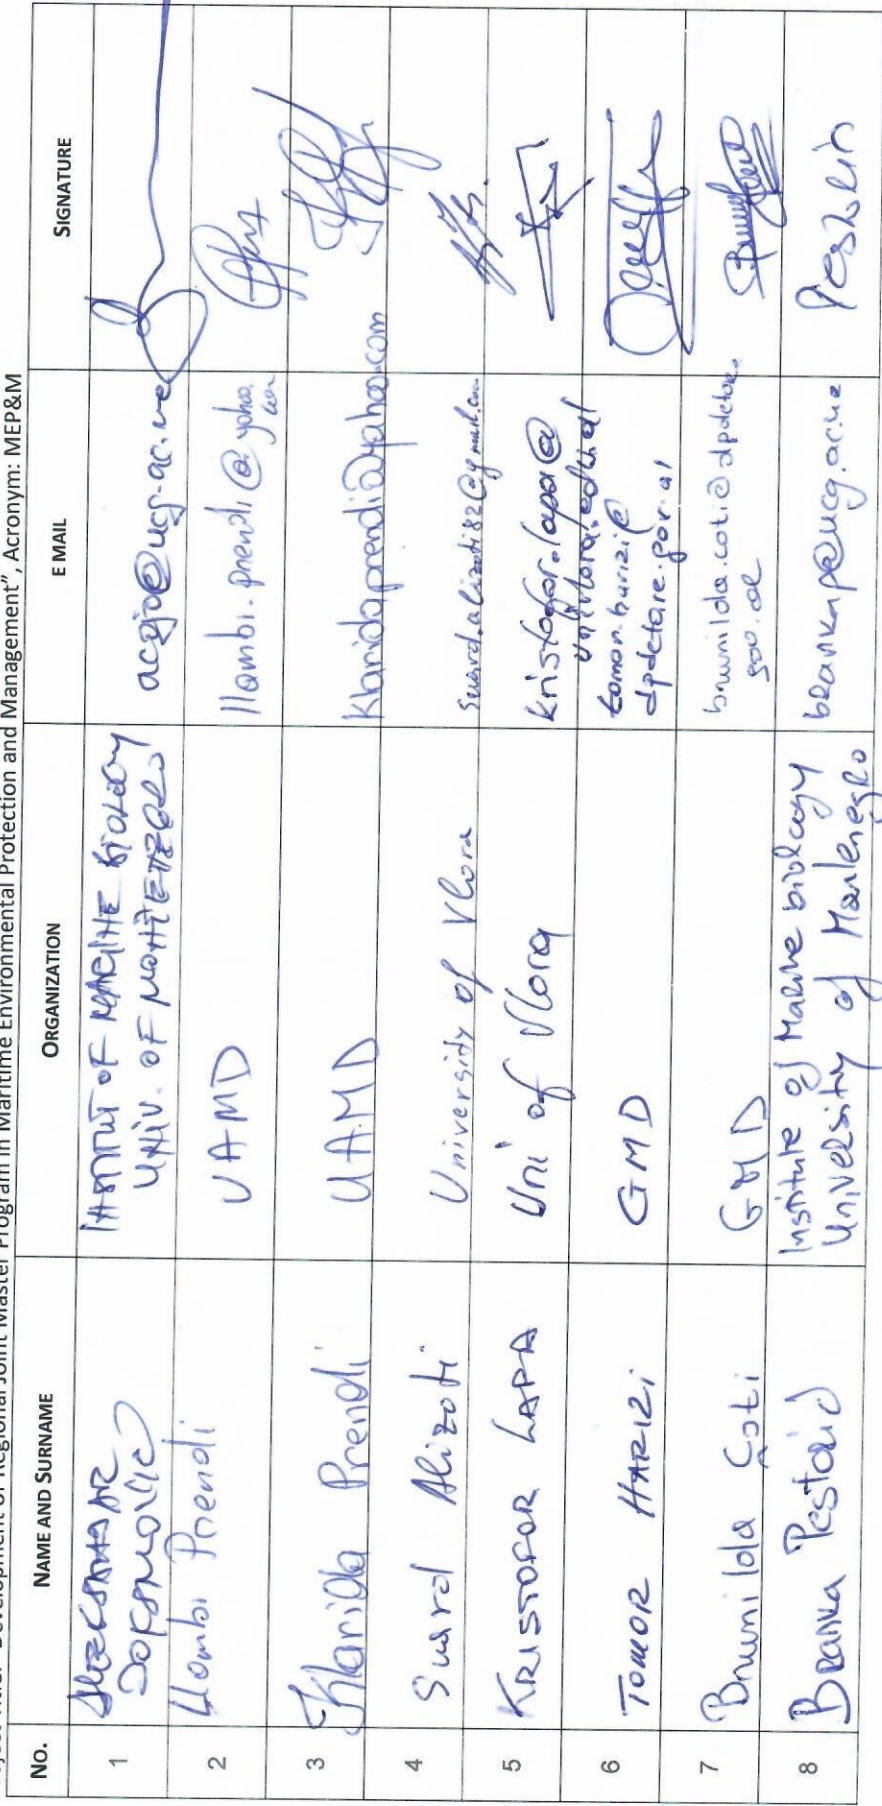 Project Title: "Development of Regional Joint Master Program in Maritime Environmental Protection and Management", Acronym: MEP&M
No. NAME AND SURNAME ORGANIZATION E MAIL SIGNATURE
1 INSTITUT OF MARINE BIOLOGY
UNIV. OF MONTENEGRO acojo@ucg.ac.me
2 Llambi Prendi UAMD llambi.prendi@yahoo.
com
3 Klarida Prendi UAMD klaridaprendi@yahoo.com
4 Suard Alizoti University of Vlora suard.alizoti82@gmail.com
5 KRISTOFOR LAPA Uni of Vlora kristofor.lapa@
univlora.edu.al
6 TOMOR HARIZI GMD tomor.harizi@
dpdetare.gov.al
7 Brunilda Çoti GMD brunilda.coti@dpdetare.
gov.al
8 Branka Pestorić Institute of Marine biology
University of Montenegro brankap@ucg.ac.me